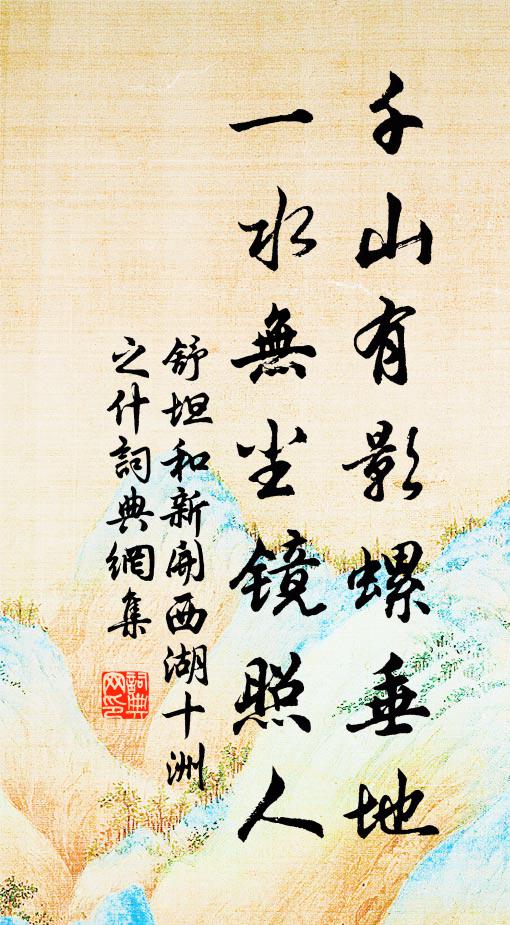 千山有影螺垂地
一水無尘镜照人
舒坦和新開西湖十洲
之什詞典網集
詞典网印